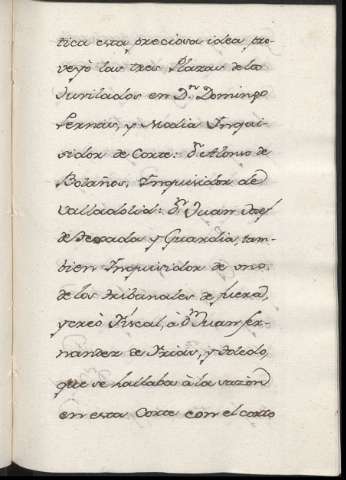 tica esta preciosa idea pro-
veyò las tres Plazas de la
Juvilados en D.n Domingo
y Media Inqui-
sidor de Corte: D.n Alonso de
Bolaños, Inquisidor de
Valladolid: D.n Juan Josef
de Texada y Guardia, tam-
bien Inquisidor de uno
de los tribunales de fuera,
y creò Fiscal, à D.n Juan Fer-
nandez de Frias, y Toledo,
que se hallaba à la sazon
en esta Corte con el corto